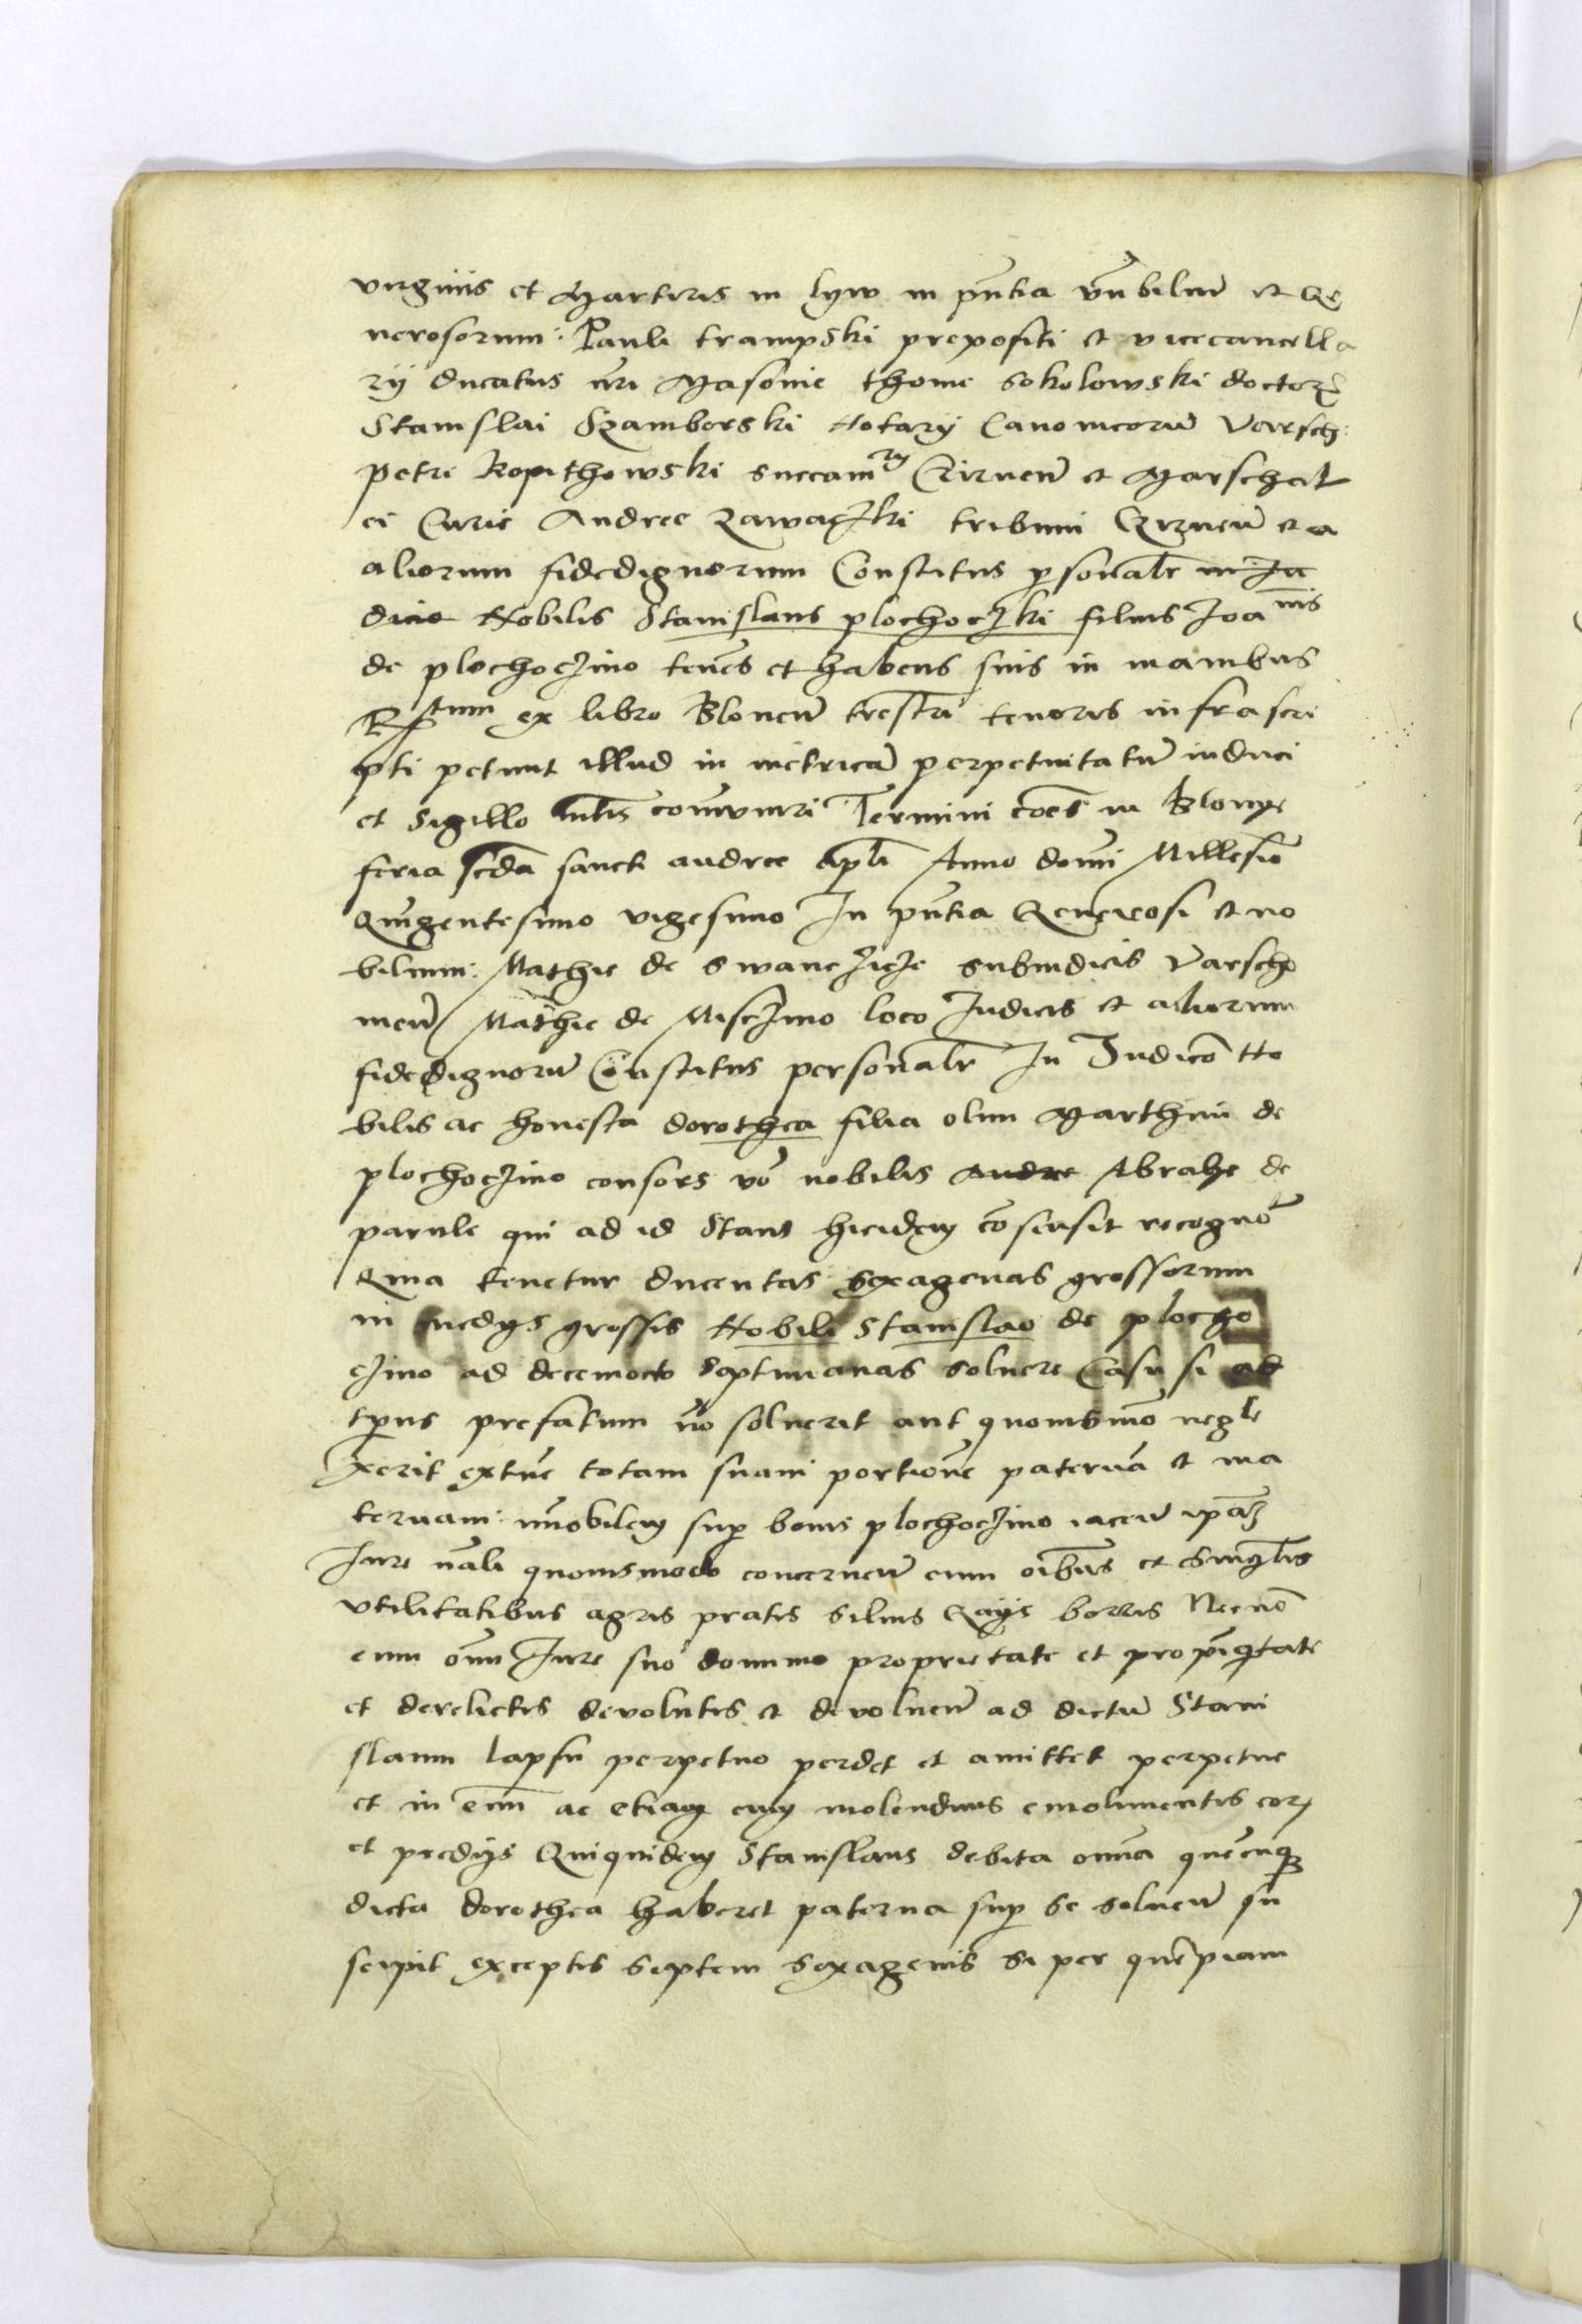 virginis et Martiris in lyw in pñtia vñbiliũ et Ge
nerosorum: Pauli trampski prepositi et vicecancella
rij ducatus nri Masovie thome Sokolowski doctorz
Stanislai Szamborski Notarij Canonicorũ Varsch:
petri Kopithowski succamrij Czirneñ et Marschal
ci Curie Andree Zawaczki tribuni Czrneñ et a
aliorum fidedignorum Constitus personalr in Ju
dicio Nobilis Stanislaus plochoczki filius Joannis
de plochoczino teñes et habens suis in manibus
Rptum ex libro Bloneñ trestri tenoris infrascri
pti petiuit illud in metricã perpetuitatũ induci
et Sigillo comuniri Termini coẽs in Blonye
feria scda sancti andree apli Anno domĩ Millesiõ
Quigentesimo vigesimo In pñtia Generosi et no
bilium: Mathie de Swanczicze subiudicis Varscho
uieñ Mathie de Misczino loco Judicis et aliorum
fidedignorũ Constitus personalr In Judicõ No
bilis ac honesta dorothea filia olim Marthini de
plochoczino consors võ nobilis Andre Abrahe de
parule qui ad id Stans hicidem cõsensit recognõ
Quia tenetur ducentas sexagenas grossorum
in medys grossis Nobili Stanislao de plocho
czino ad decemocto Septimanas soluere Casu si ad
tpus prefatum nõ soluerit aut quouismõ negle
xerit extũc totam suam portionẽ paternã et ma
ternam: imobilem sup bonis plochoczino iaceñ ipãz
Jure nãli quouismodo concerneñ cum oibus et singlis
vtilitatibus agris pratis siluis Gays borris Necnõ
cum omi Jure suo dominio proprietate et propiqtate
et derelictis deuolutis et deuolueñ ad dictũ Stani
slaum lapsu perpetuo perdet et amittet perpetue
et in eũm ac etiam cum molendinis emolumentis eorz
et predys Quiquidem Stanislaus debita omia quecunqz
dicta dorothea haberet paterna sup se solueñ su
scipit exceptis septem sexagenis si per quẽpiam